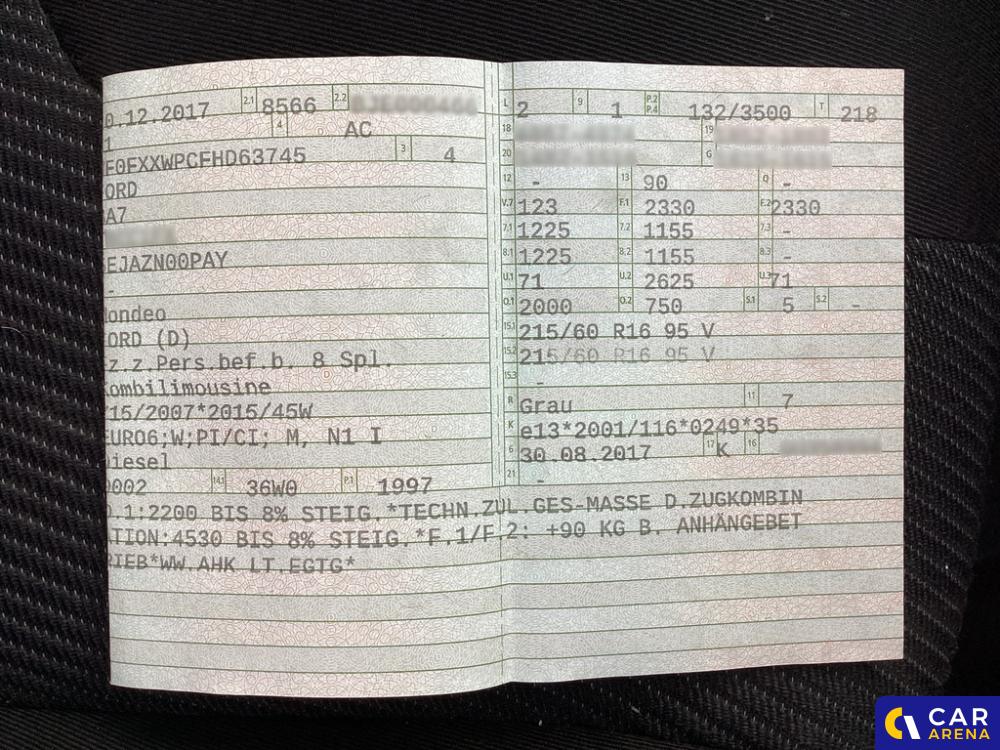 0.12.2017 2.1 8566 2.2
4 AC
E0FXXWPCFHD63745 3 4
ORD
A7
EJAZN00PAY
-
ondeo
ORD (D)
z.z.Pers.bef.b. 8 Spl.
ombilimousine
15/2007*2015/45W
EURO6;W;PI/CI; M, N1 I
iesel
0002 14.1 36W0 P.1 1997
.1:2200 BIS 8% STEIG.*TECHN.ZUL.GES-MASSE D.ZUGKOMBIN
TION:4530 BIS 8% STEIG.*F.1/F.2: +90 KG B. ANHÄNGEBET
RIEB*WW.AHK LT.EGTG*
L 2 9 1 P.2 P.4 132/3500 T 218
18 19
20 G
12 - 13 90 Q -
V.7 123 F.1 2330 F.2 2330
7.1 1225 7.2 1155 7.3 -
8.1 1225 8.2 1155 8.3 -
U.1 71 U.2 2625 U.3 71
O.1 2000 O.2 750 S.1 5 S.2 -
15.1 215/60 R16 95 V
15.2 215/60 R16 95 V
15.3 -
R Grau 11 7
K e13*2001/116*0249*35
6 30.08.2017 17 K 16
21 -
CAR
ARENA